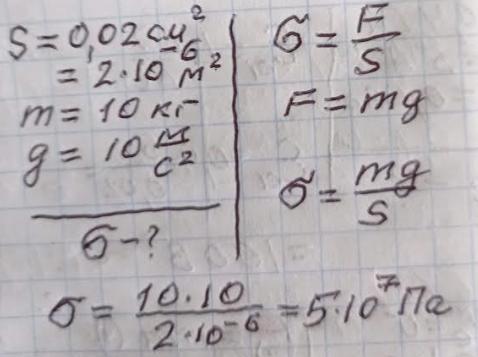 S = 0,02 см²
= 2·10⁻⁶ м²
m = 10 кг
g = 10 м/с²
σ - ?
σ = F/S
F = mg
σ = mg/S
σ = 10·10/2·10⁻⁶ = 5·10⁷ Па